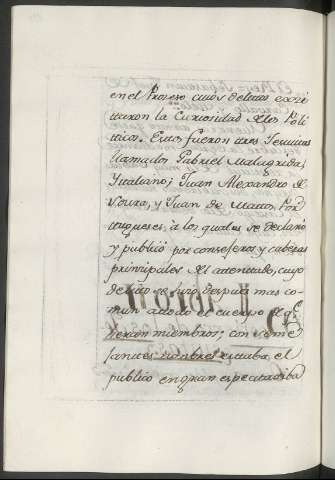 en el Proceso cuios delitos exci
taron la Curiosidad de los Poli
ticos. Estos fueron tres Jesuitas
llamados Gabriel Malagrida,
Ytaliano; Juan Alexandro de
Souza, y Juan de Matos, Por
tugueses, a los quales se declaró
y publicó por consejeros, y cabezas
principales del atentado, cuyo
delito se hizo despues mas co-
mun a todo el cuerpo de q.e
heran miembros; con seme
jantes estaba, el
publico en gran espectativa